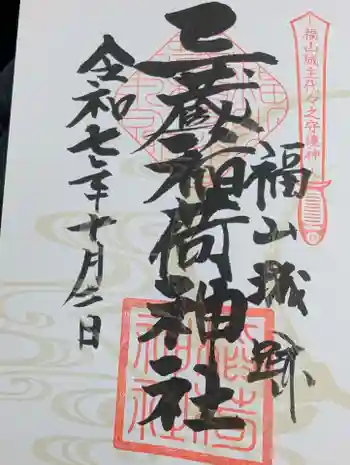 福山城主代々之守護神
福山城跡
三蔵稲荷神社
令和七年十月日